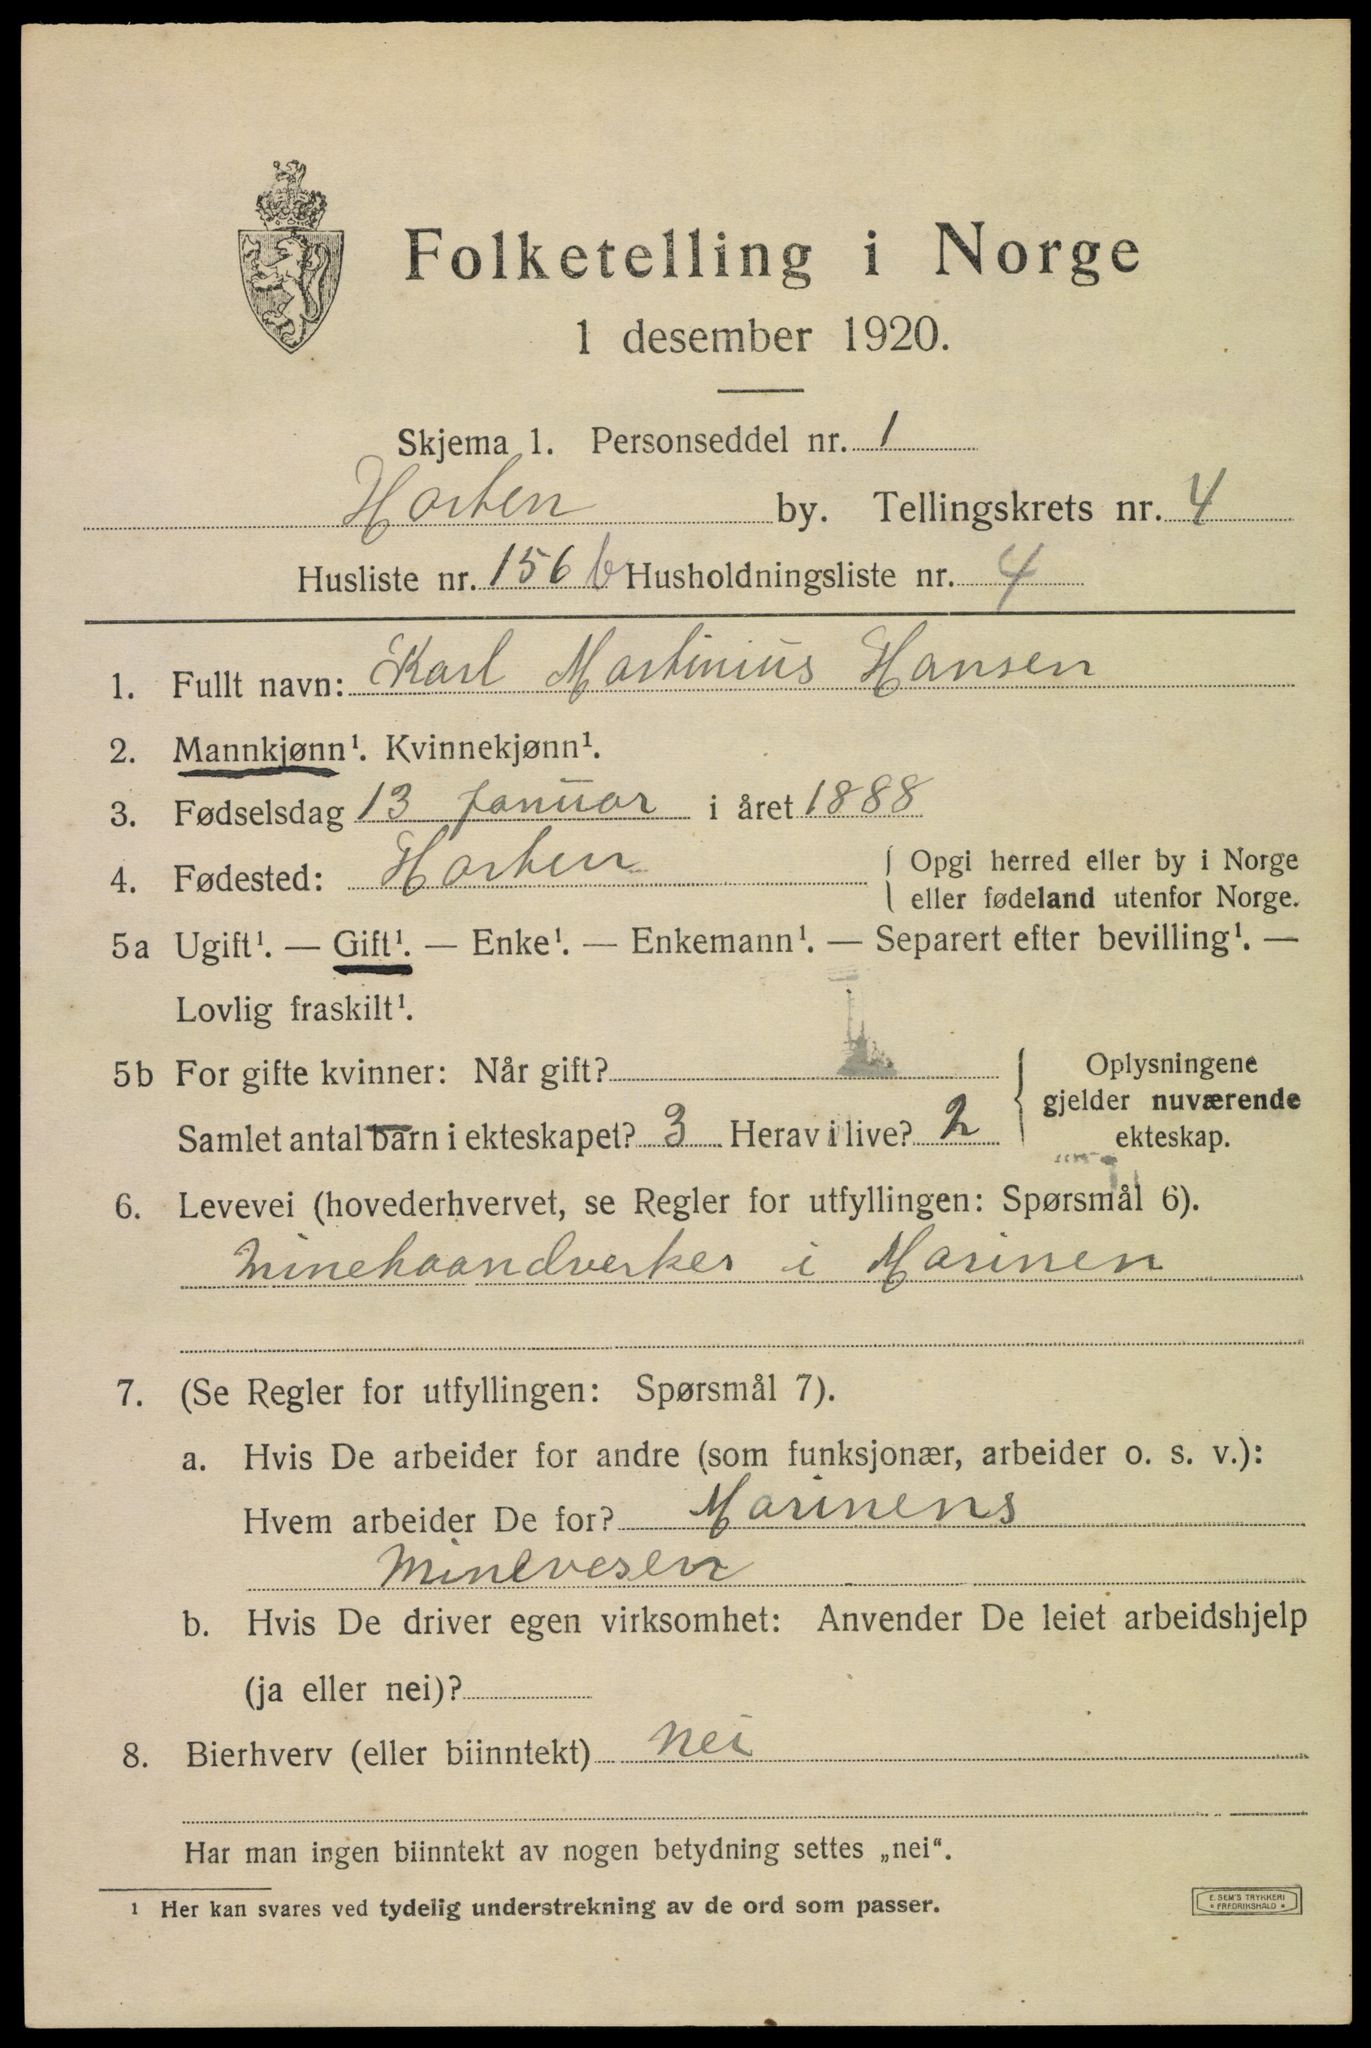 Folketelling i Norge
1 desember 1920.
Skjema 1. Personseddel nr. 1
Horten by. Tellingskrets nr. 4
Husliste nr. 156 b Husholdningsliste nr. 4
1. Fullt navn: Karl Martinius Hansen
2. Mannkjønn¹. Kvinnekjønn¹.
3. Fødselsdag 13 januar i året 1888
4. Fødested: Horten { Opgi herred eller by i Norge
eller fødeland utenfor Norge.
5a Ugift¹. — Gift¹. — Enke¹. — Enkemann¹. — Separert efter bevilling¹. —
Lovlig fraskilt¹.
5b For gifte kvinner: Når gift? { Oplysningene
gjelder nuværende
ekteskap.
Samlet antal barn i ekteskapet? 3 Herav i live? 2
6. Levevei (hovederhvervet, se Regler for utfyllingen: Spørsmål 6).
Minehaandverker i Marinen
7. (Se Regler for utfyllingen: Spørsmål 7).
a. Hvis De arbeider for andre (som funksjonær, arbeider o. s. v.):
Hvem arbeider De for? Marinens
Minevesen
b. Hvis De driver egen virksomhet: Anvender De leiet arbeidshjelp
(ja eller nei)?
8. Bierhverv (eller biinntekt) nei
Har man ingen biinntekt av nogen betydning settes „nei“.
¹ Her kan svares ved tydelig understrekning av de ord som passer.
E. SEM'S TRYKKERI
* FREDRIKSHALD *